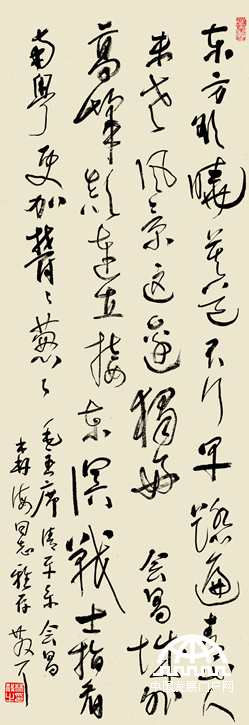 东方欲曉莫道君行早踏遍青山人
未老风景这边獨好 会昌城外
高峰颠连直接东溟戰士指看
南粤更加郁〻葱〻 毛主席清平乐会昌
森海同志雅存
中国发展门户网